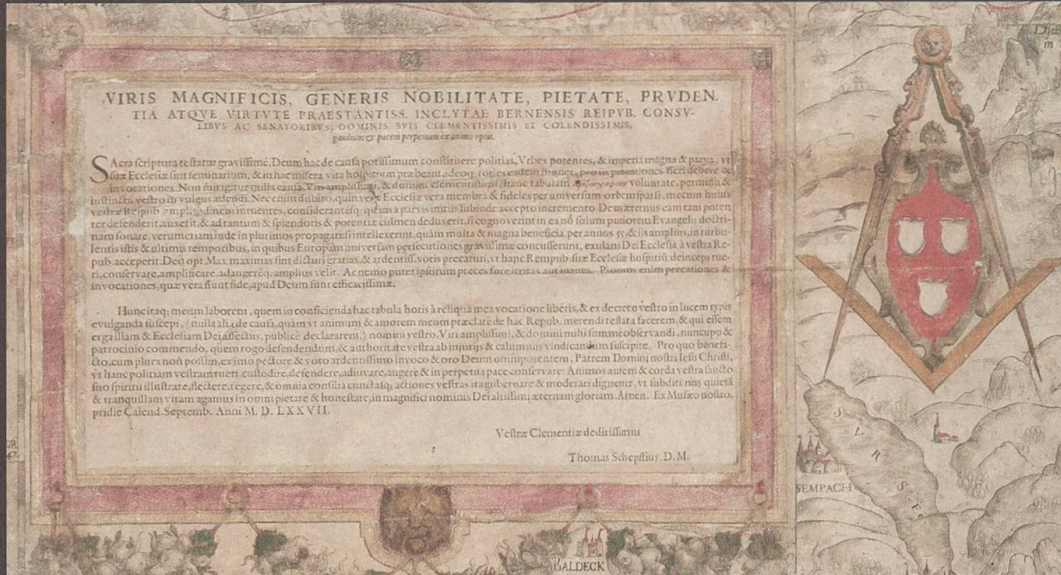 VIRIS MAGNIFICIS, GENERIS NOBILITATE, PIETATE, PRVDEN.
TIA ATQVE VIRTVTE PRAESTANTISS. INCLYTAE BERNENSIS REIPVB. CONSV-
LIBVS AC SENATORIBVS, DOMINIS SVIS CLEMENTISSIMIS ET COLENDISSIMIS,
gaudium & pacem perpetuam ex animo optat.
SAcra scriptura testatur gravissimè, Deum hac de causa potissimum constituere politias, Vrbes potentes, & imperia magna & parva, vt
suæ Ecclesiæ sint seminarium, & in hac misera vita hospitium præbeant, adeoq; pro potentiones fieri debere &
invocationes. Non fuit igitur nulla causa, Viri amplissimi, & domini clementissimi, hanc tabulam voluntate, permissu &
instinctu vestro in vulgus ædendi. Nec enim dubito, quin vera Ecclesiæ vera membra & fideles per universum orbem sparsi, mecum huius
vestræ Reipub. amplitudinem intuentes, considerantesq; quem à parvis initiis subinde accepto incremento Deus æternus eam tam poten-
ter defenderit, auxerit, & ad tantum & splendoris & potentiæ culmen deduxerit, si cognoverint in ea nõ solum puriorem Evangelii doctri-
nam sonare, verum etiam inde in plurimos propagari: si intellexerint, quàm multa & magna beneficia, per annos & iis amplius, in turbu-
lentis istis & ultimis temporibus, in quibus Europam universam persecutiones gravissimæ concusserunt, exulani Dei Ecclesia à vestra Re-
pub. acceperit. Deo opt. Max. maximas sint dicturi gratias, & ardentiss. votis precaturi, vt hanc Rempub. suæ Ecclesiæ hospitiũ deinceps tue-
ri, conservare, amplificare, ad angereq; amplius velit. Ac nemo putet ipsorum preces fore irritas aut inanes. Piorum enim precationes &
invocationes, quæ veræ sunt fide, apud Deum sunt efficacissimæ.
Hunc itaq; meum laborem, quem in conficienda hac tabula horis à reliqua mea vocatione liberis, & ex decreto vestro in lucem typis
evulganda suscepi, nulla alia de causa, quàm vt animum & amorem meum præclarè de hac Repub. merendi testata facerem, & qui essem
erga illam & Ecclesiam Dei affectus, publicè declararem, nomini vestro, Viri amplissimi, & domini mihi summè observandi, nuncupo &
patrocinio commendo, quem rogo defendendum, & authoritate vestra ab injuriis & calumniis vindicandum suscipite. Pro quo benefa-
cto, cum plura non possim, ex imo pectore & voto ardentissimo invoco & oro Deum omnipotentem, Patrem Domini nostri Iesu Christi,
vt hanc politiam vestram tueri, custodire, defendere, adiuvare, augere & in perpetua pace conservare: Animos autem & corda vestra sancto
suo spiritu illustrare, flectere, regere, & omnia consilia cunctasq; actiones vestras ita gubernare & moderari dignetur, vt subditi nos quietã
& tranquillam vitam agamus in omni pietate & honestate, in magnifici nominis Dei altissimi æternam gloriam. Amen. Ex Musæo nostro,
pridie Calend. Septemb. Anni M. D. LXXVII.
Vestræ Clementiæ deditissimus
Thomas Schepsius, D. M.
SVR
SEE
SEMPACH
BALDECK